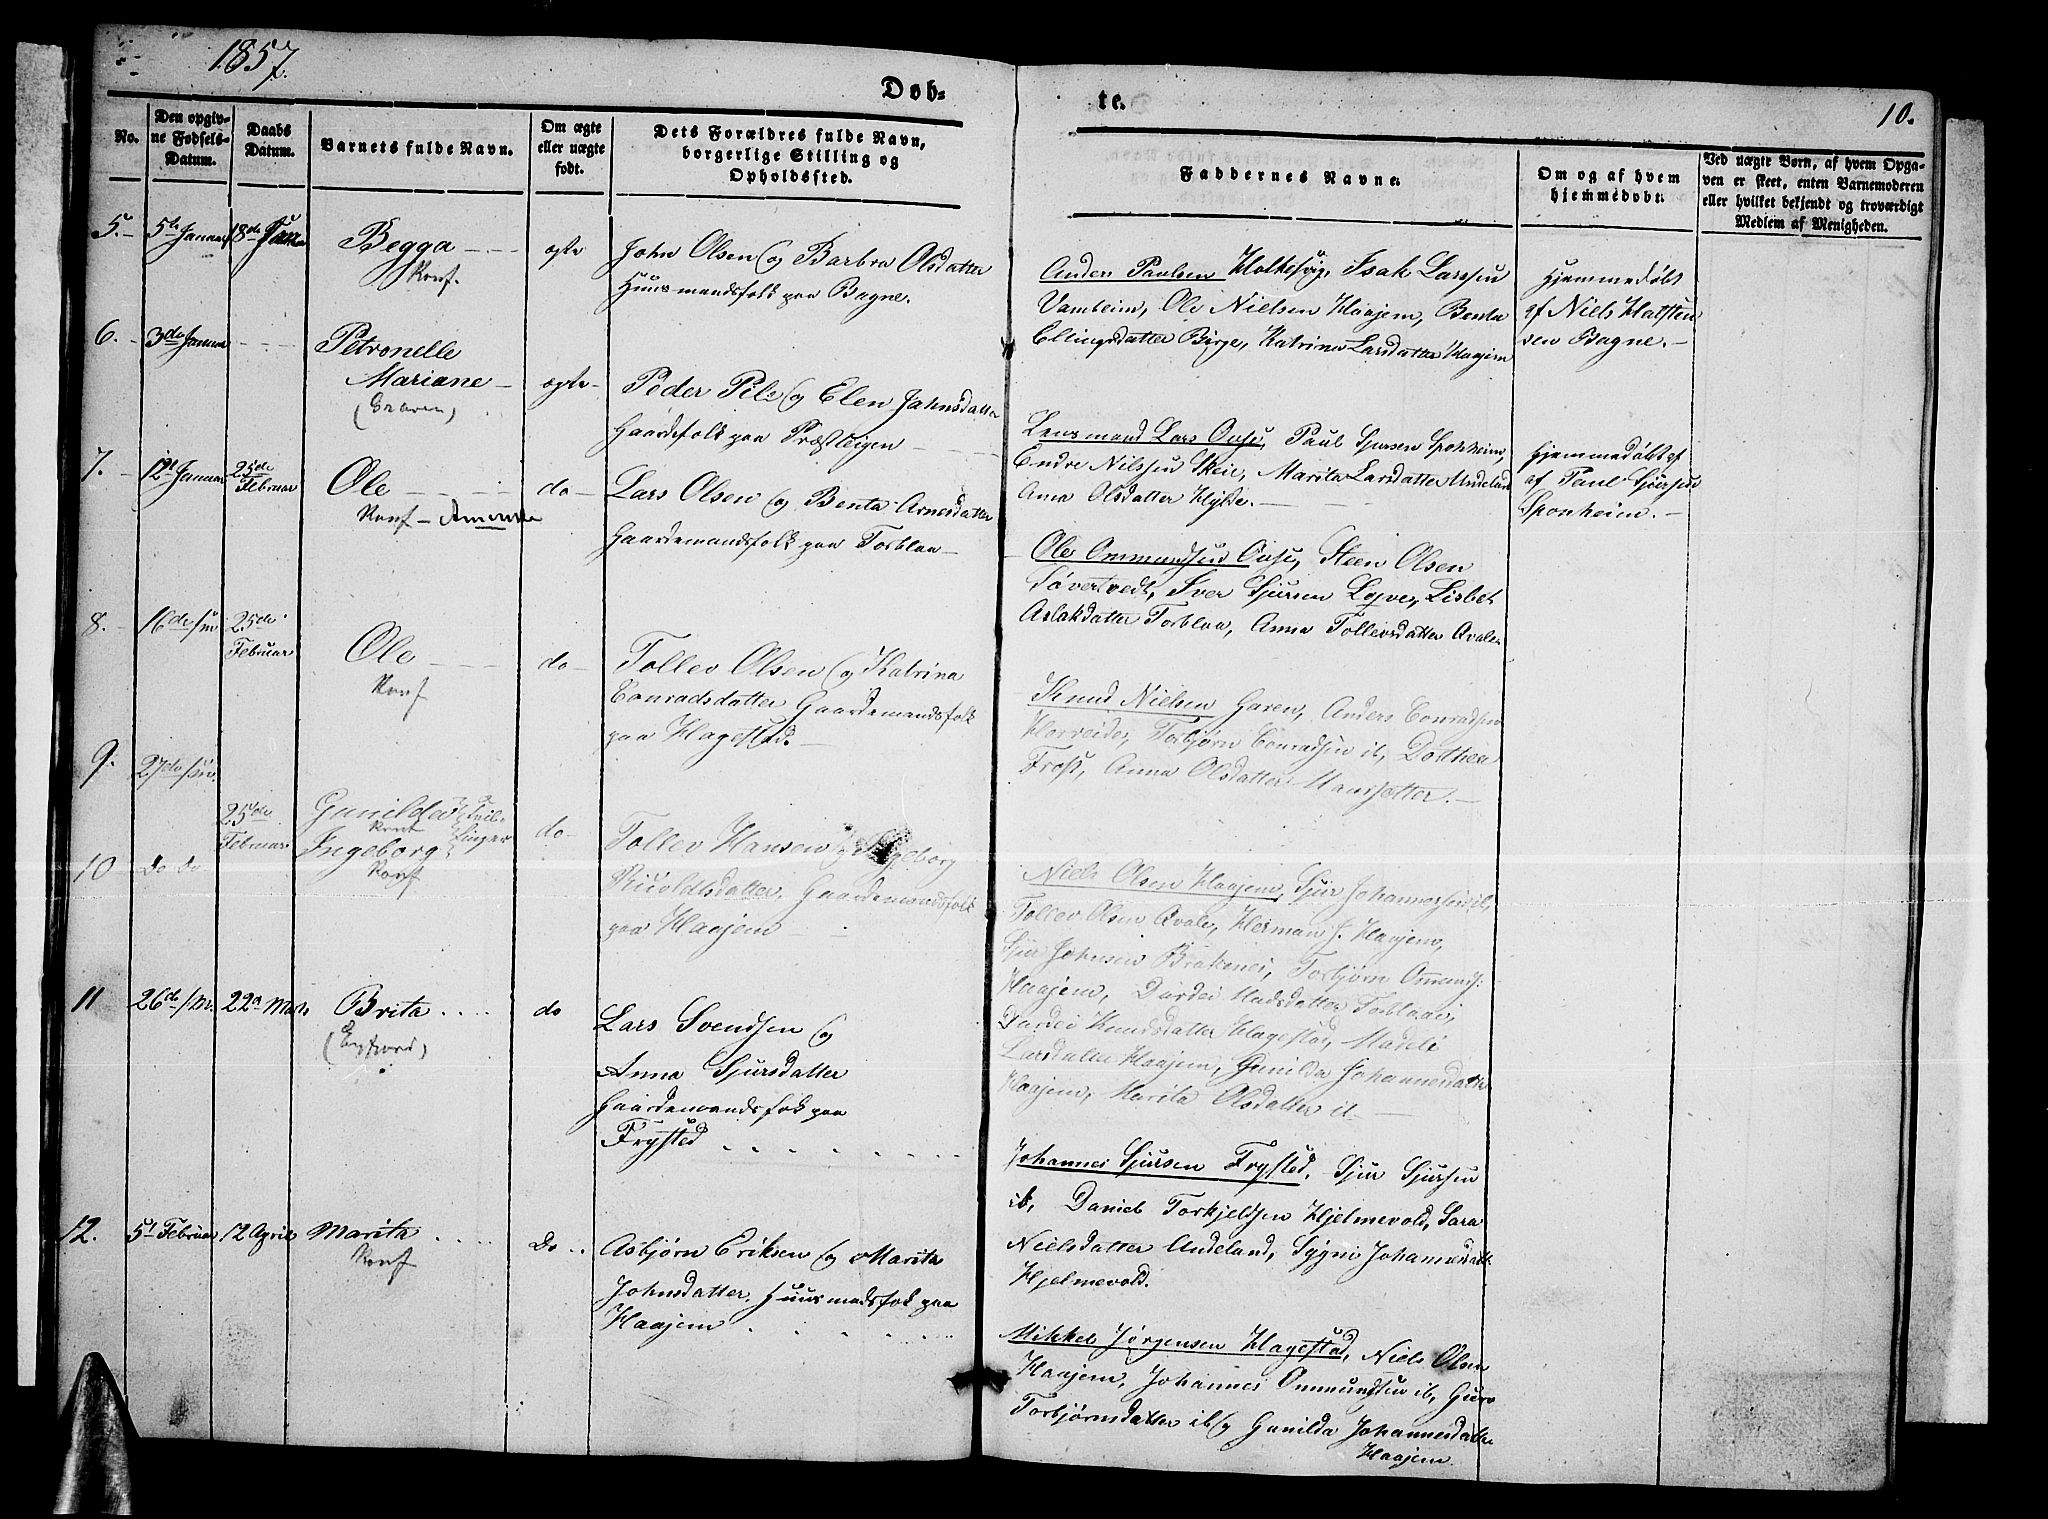 1857.
Døb-
te.
10.
No.
Den opgiv-
ne Fødsels-
Datum.
Daabs
Datum.
Barnets fulde Navn.
Om ægte
eller uægte
født.
Dets Forældres fulde Navn,
borgerlige Stilling og
Opholdssted.
Faddernes Navne.
Om og af hvem
hjemmedøbt.
Ved uægte Børn, af hvem Opga-
ven er skeet, enten Barnemoderen
eller hvilket bekjendt og troværdigt
Medlem af Menigheden.
5. 5te Januar 18de Jan Begga ægte John Olsen og Barbra Olsdatter
Konf.
Huusmandsfolk paa Bagne.
Anders Paulsen Holkesøg, Isak Larssen
Vambeim, Ole Nielsen Haajem, Benta
Ellingsdatter Børge, Katrina Larsdatter Haajem
Hjemmedøbt
af Niels Halsten
sen Bagne.
6. 3die Januar Petronelle
Mariane ægte Peder Pilz og Elen Jahnsdatter
(Graven)
Gaardefolk paa Præsteigen
Lensmand Lars Ouse, Paul Sjursen Sponheim,
Endre Nilssen Skeie, Marita Larsdatter Undeland
Anna Olsdatter Hylde.
Hjemmedøbt af
af Paul Sjursen
Sponheim.
7. 12t Januar 25de
Februar Ole do Lars Olsen og Benta Arnesdatter
Konf - Amerika
Gaardemandsfolk paa Torblaa
Ole Ommundsen Ouse, Steen Olsen
Tøvertvedt, Iver Sjursen Lejve, Lisbet
Aslakdatter Torblaa, Anna Tollevsdatter Qvale
8. 16de 25de
Februar Ole do Tollev Olsen og Katrina
Konf
Conradsdatter Gaardemandsfolk
paa Hagestad.
Knud Nielsen Garen, Anders Conradsen
Herreide, Torbjørn Conradsen ib, Dorthea
Frost, Anna Olsdatter Maursætter.
9. 27de
25de
Februar Gunilda Tvil-
Konf
Ingeborg linger do Tollev Hansen og Ingeborg
Konf
10 do do
Gaardemandsfolk
paa Haajem
Niels Olsen Haajem, Sjur Johannessen ib,
Tollev Olsen Qvale, Herman J. Haajem,
Sjur Johnsen Brakenes, Torbjørn Ommunds:
Haajem, Durdei Madsdatter Torblaa,
Durdei Knudsdatter Hagestad, Madeli
Larsdatter Haajem, Gunilda Johannesdatter
Haajem, Marita Olsdatter ib
11 26de 22a Marts Brita do Lars Svendsen og
(Eyfjord)
Anna Sjursdatter
Gaardemandsfolk paa
Trysted
Johannes Sjursen Trysted, Sjur Sjursen
ib, Daniel Torkjeldsen Hjelmevold, Sara
Nielsdatter Undeland, Sygni Johannesdatt
Hjelmevold.
12. 5t Februar 12 April Marita Do Asbjørn Eriksen og Marita
Konf
Johnsdatter, Huusmandsfolk paa
Haajem
Mikkel Jørgensen Hagestad, Niels Olsen
Haajem, Johannes Ommundsen ib, Guro
Torbjørnsdatter ib og Gunilda Johannesdatt
Haajem